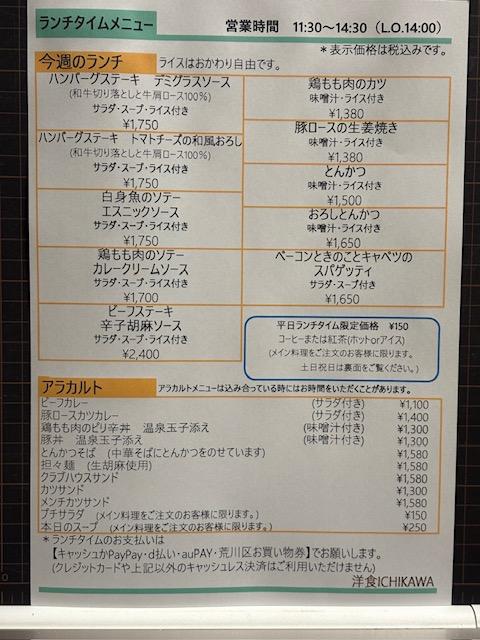 ランチタイムメニュー
営業時間 11:30～14:30（L.O.14:00）
＊表示価格は税込みです。
今週のランチ ライスはおかわり自由です。
ハンバーグステーキ デミグラスソース
(和牛切り落としと牛肩ロース100%)
サラダ・スープ・ライス付き
¥1,750
ハンバーグステーキ トマトチーズの和風おろし
(和牛切り落としと牛肩ロース100%)
サラダ・スープ・ライス付き
¥1,750
白身魚のソテー
エスニックソース
サラダ・スープ・ライス付き
¥1,750
鶏もも肉のソテー
カレークリームソース
サラダ・スープ・ライス付き
¥1,700
ビーフステーキ
辛子胡麻ソース
サラダ・スープ・ライス付き
¥2,400
鶏もも肉のカツ
味噌汁・ライス付き
¥1,380
豚ロースの生姜焼き
味噌汁・ライス付き
¥1,380
とんかつ
味噌汁・ライス付き
¥1,500
おろしとんかつ
味噌汁・ライス付き
¥1,650
ベーコンときのことキャベツの
スパゲッティ
サラダ・スープ付き
¥1,650
平日ランチタイム限定価格 ¥150
コーヒーまたは紅茶(ホットorアイス)
(メイン料理をご注文のお客様に限ります。
土日祝日は裏面をご覧ください。)
アラカルト アラカルトメニューは込み合っている時にはお時間をいただくことがあります。
ビーフカレー (サラダ付き) ¥1,100
豚ロースカツカレー (サラダ付き) ¥1,400
鶏もも肉のピリ辛丼 温泉玉子添え (味噌汁付き) ¥1,300
豚丼 温泉玉子添え (味噌汁付き) ¥1,300
とんかつそば (中華そばにとんかつをのせています) ¥1,580
担々麺 (生胡麻使用) ¥1,580
クラブハウスサンド ¥1,580
カツサンド ¥1,300
メンチカツサンド ¥1,580
プチサラダ (メイン料理をご注文のお客様に限ります。) ¥150
本日のスープ (メイン料理をご注文のお客様に限ります。) ¥250
＊ランチタイムのお支払いは
【キャッシュかPayPay・d払い・auPAY・荒川区お買い物券】でお願いします。
(クレジットカードや上記以外のキャッシュレス決済はご利用いただけません)
洋食ICHIKAWA